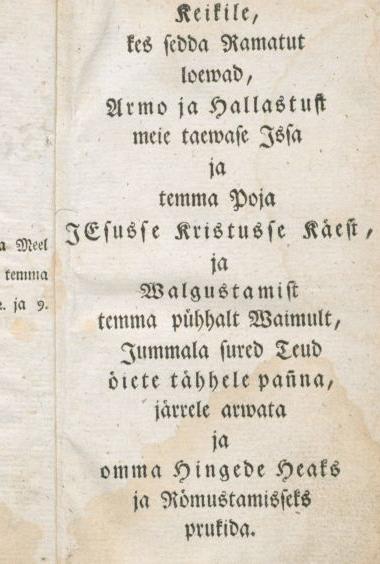 Keikile,
kes sedda Ramatut
loewad,
Armo ja Hallastust
meie taewase Issa
ja
temma Poja
JEsusse Kristusse Käest,
ja
Walgustamist
temma pühhalt Waimult,
Jummala sured Teud
öiete tähhele pañna,
järrele arwata
ja
omma Hingede Heaks
ja Römustamisseks
prukida.
a Meel
temma
2. ja 9.